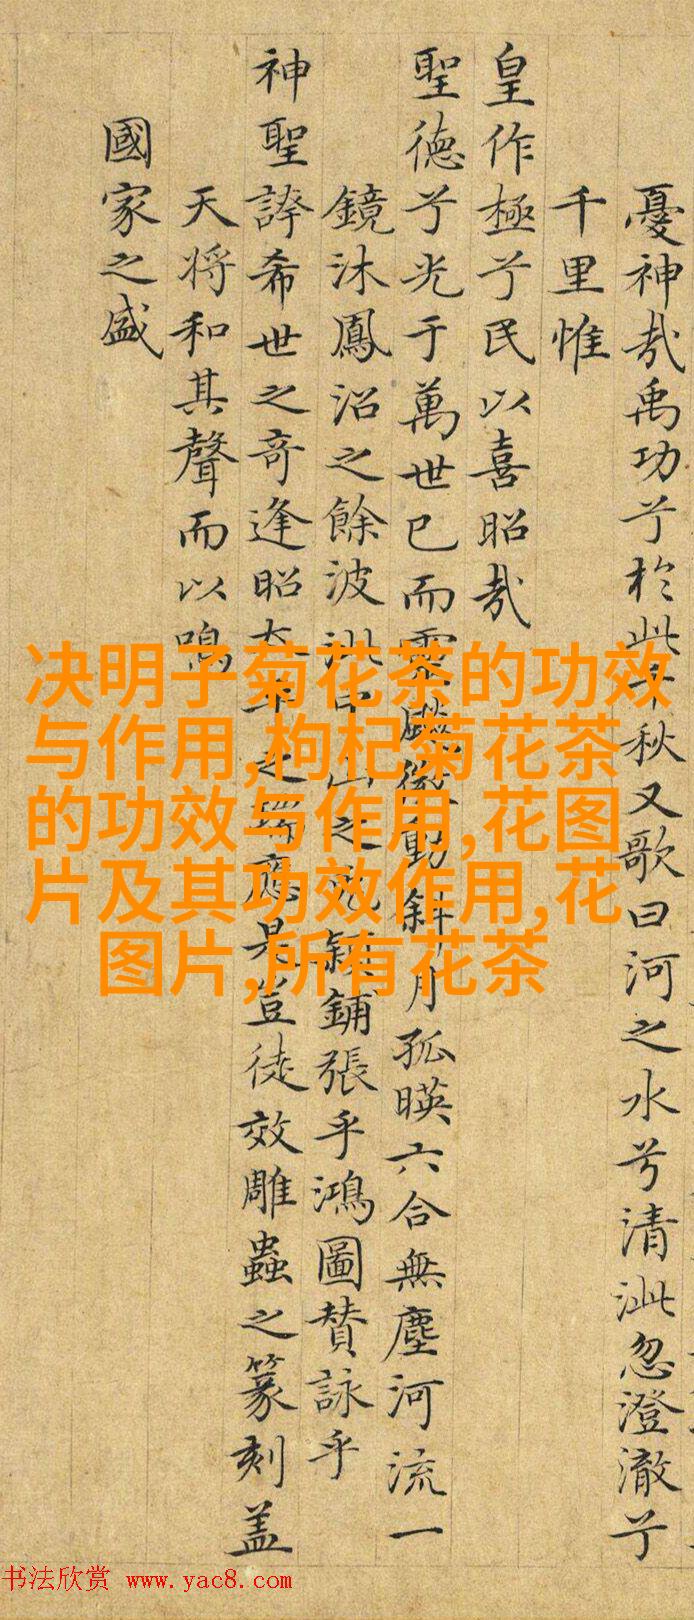 憂神哉禹功兮於此千秋又歌曰河之水兮清泚忽澄澈兮
千里惟
皇作極兮民以喜昭哉
聖德兮光于萬世已而靈微動斜月孤暎六合無塵河流一
鏡沐鳳沼之餘波泚中山之兔穎鋪張乎鴻圖賛詠乎
神聖誇希世之奇逢昭太平之瑞應是豈徒效雕蟲之篆刻盖
天将和其聲而以鳴
國家之盛
决明子菊花茶的功效
与作用,枸杞菊花茶
的功效与作用,花图
片及其功效作用,花
图片,所有花茶
书法欣赏 www.yac8.com